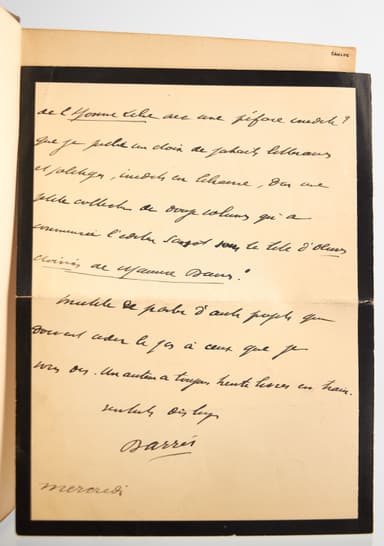 de l'Homme libre avec une préface inédite ?
que je publie un choix de portraits littéraires
et politiques, inédits en librairie, dans une
petite collection de douze volumes qu'a
commencée l'éditeur Sansot sous le titre d'Œuvres
choisies de Maurice Barrès."
Inutile de parler d'autres projets qui
doivent céder le pas à ceux que je
vous dis. Un auteur a toujours trente livres en train.
Barrès
mercredi